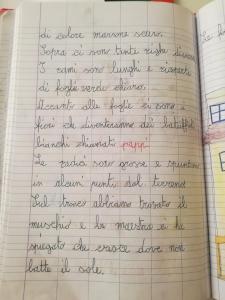 di colore marrone scuro.
Sopra ci sono tante righe diverse
I rami sono lunghi e ricoperti
di foglie verde chiaro.
Accanto alle foglie ci sono i
fiori che diventeranno dei batuffoli
bianchi chiamati pappi
Le radici sono grosse e spuntano
in alcuni punti dal terreno
Sul tronco abbiamo trovato il
muschio e la maestra ci ha
spiegato che cresce dove non
batte il sole.